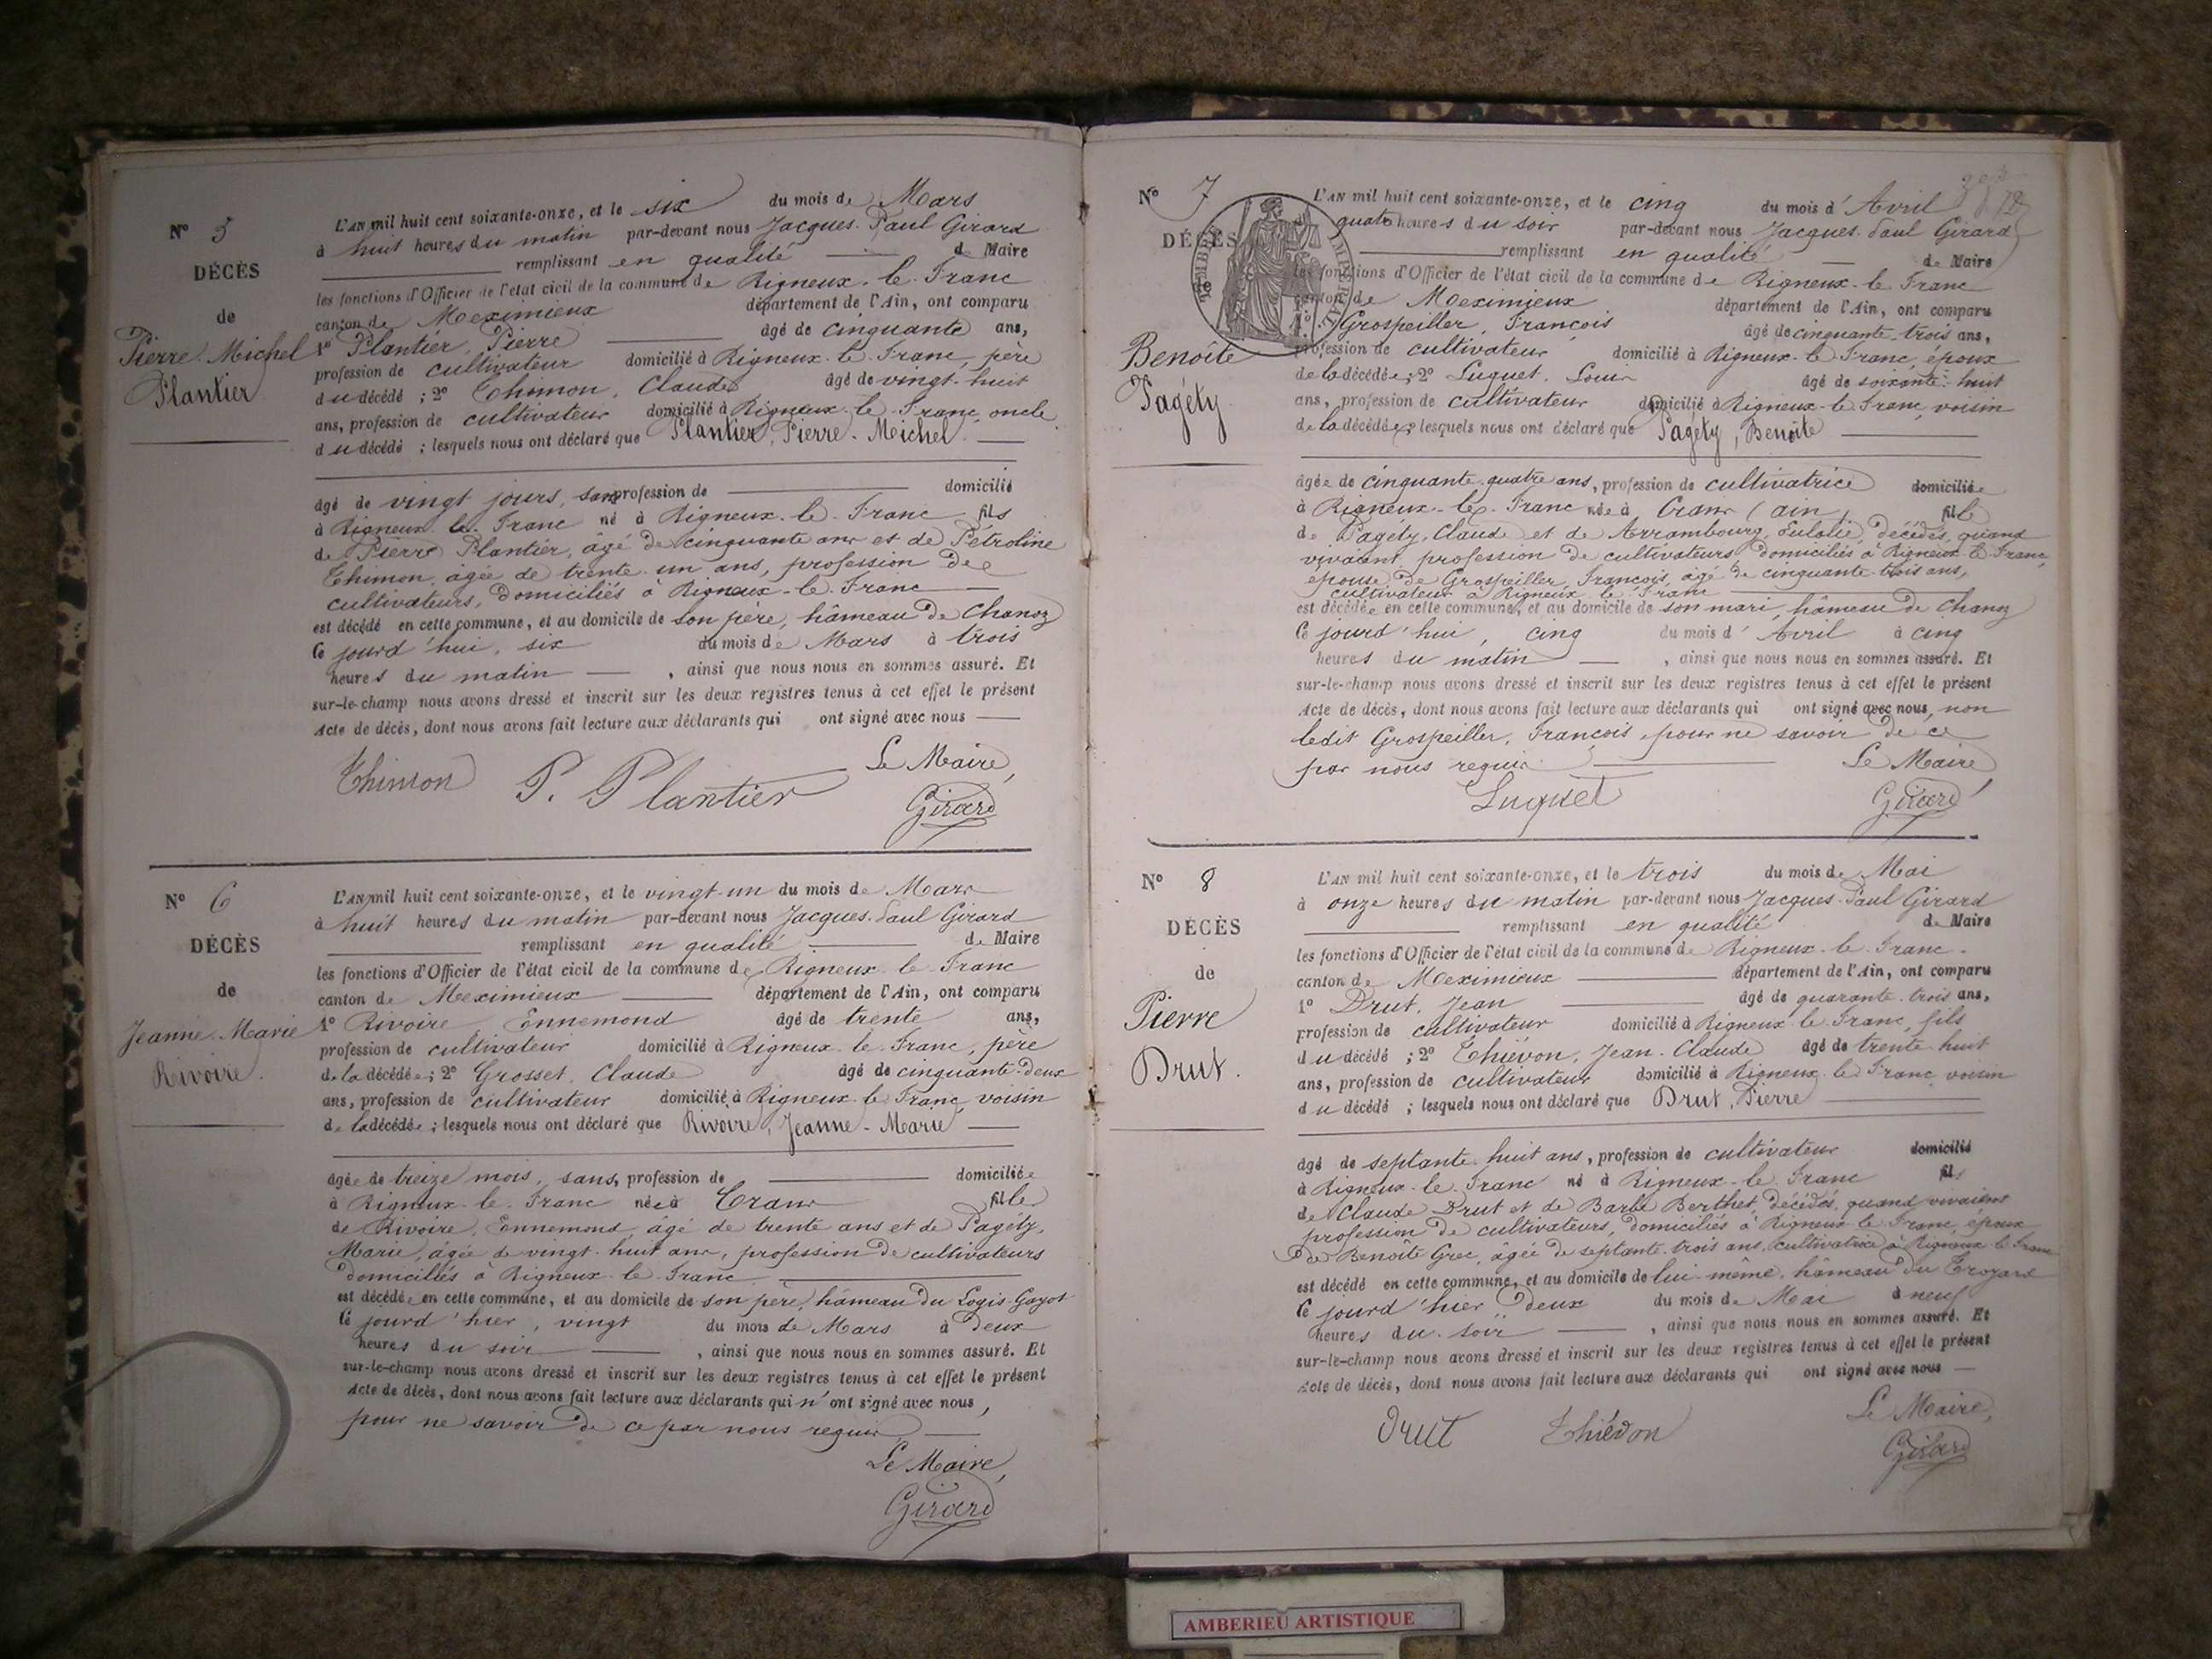 N° 5
DÉCÈS
de
Pierre-Michel
Plantier
L'AN mil huit cent soixante-onze, et le six du mois de Mars
à huit heures du matin par-devant nous Jacques-Paul Girard
remplissant en qualité de Maire
les fonctions d'Officier de l'état civil de la commune de Rigneux-le-Franc
canton de Meximieux département de l'Ain, ont comparu
1° Plantier, Pierre âgé de cinquante ans,
profession de cultivateur domicilié à Rigneux-le-Franc, père
du décédé ; 2° Thimon, Claude âgé de vingt-huit
ans, profession de cultivateur domicilié à Rigneux-le-Franc, oncle
du décédé ; lesquels nous ont déclaré que Plantier, Pierre-Michel
âgé de vingt jours, sans profession de domicilié
à Rigneux-le-Franc né à Rigneux-le-Franc fils
de Pierre Plantier, âgé de cinquante ans et de Pétroline
Thimon, âgée de trente-un ans, profession de
cultivateurs, domiciliés à Rigneux-le-Franc
est décédé en cette commune, et au domicile de son père, hâmeau de Chanoz
Ce jourd'hui, six du mois de Mars à trois
heures du matin, ainsi que nous nous en sommes assuré. Et
sur-le-champ nous avons dressé et inscrit sur les deux registres tenus à cet effet le présent
Acte de décès, dont nous avons fait lecture aux déclarants qui ont signé avec nous
Le Maire,
Thimon P. Plantier Girard
N° 6
DÉCÈS
de
Jeanne-Marie
Rivoire.
L'AN mil huit cent soixante-onze, et le vingt-un du mois de Mars
à huit heures du matin par-devant nous Jacques-Paul Girard
remplissant en qualité de Maire
les fonctions d'Officier de l'état civil de la commune de Rigneux-le-Franc
canton de Meximieux département de l'Ain, ont comparu
1° Rivoire, Ennemond âgé de trente ans,
profession de cultivateur domicilié à Rigneux-le-Franc, père
de la décédée ; 2° Grosset, Claude âgé de cinquante-deux
ans, profession de cultivateur domicilié à Rigneux-le-Franc, voisin
de la décédée ; lesquels nous ont déclaré que Rivoire, Jeanne-Marie
âgée de treize mois, sans, profession de domiciliée
à Rigneux-le-Franc née à Crans fille
de Rivoire, Ennemond, âgé de trente ans et de Pagéty,
Marie, âgée de vingt-huit ans, profession de cultivateurs
domiciliés à Rigneux-le-Franc
est décédée en cette commune, et au domicile de son père, hâmeau du Logis-Gayot
Ce jourd'hier, vingt du mois de Mars à deux
heures du soir, ainsi que nous nous en sommes assuré. Et
sur-le-champ nous avons dressé et inscrit sur les deux registres tenus à cet effet le présent
Acte de décès, dont nous avons fait lecture aux déclarants qui n'ont signé avec nous,
pour ne savoir de ce par nous requis
Le Maire,
Girard
N° 7
DÉCÈS
Benoîte
Pagéty.
L'AN mil huit cent soixante-onze, et le cinq du mois d'Avril
quatre heures du soir par-devant nous Jacques-Paul Girard
remplissant en qualité de Maire
les fonctions d'Officier de l'état civil de la commune de Rigneux-le-Franc
canton de Meximieux département de l'Ain, ont comparu
1° Grospeiller, François âgé de cinquante-trois ans,
profession de cultivateur domicilié à Rigneux-le-Franc, époux
de la décédée ; 2° Luquet, Louis âgé de soixante-huit
ans, profession de cultivateur domicilié à Rigneux-le-Franc, voisin
de la décédée ; lesquels nous ont déclaré que Pagéty, Benoîte
âgée de cinquante-quatre ans, profession de cultivatrice domiciliée
à Rigneux-le-Franc née à Crans (ain) fille
de Pagéty, Claude et de Arrambourg, Eulalie, décédés, quand
vivaient, profession de cultivateurs domiciliés à Rigneux-le-Franc,
épouse de Grospeiller, François, âgé de cinquante-trois ans,
cultivateur à Rigneux-le-Franc
est décédée en cette commune, et au domicile de son mari, hâmeau de Chanoz
Ce jourd'hui, cinq du mois d'Avril à cinq
heures du matin, ainsi que nous nous en sommes assuré. Et
sur-le-champ nous avons dressé et inscrit sur les deux registres tenus à cet effet le présent
Acte de décès, dont nous avons fait lecture aux déclarants qui ont signé avec nous, non
ledit Grospeiller, François, pour ne savoir de ce
par nous requis. Le Maire,
Luquet Girard
N° 8
DÉCÈS
de
Pierre
Drut.
L'AN mil huit cent soixante-onze, et le trois du mois de Mai
à onze heures du matin par-devant nous Jacques-Paul Girard
remplissant en qualité de Maire
les fonctions d'Officier de l'état civil de la commune de Rigneux-le-Franc
canton de Meximieux département de l'Ain, ont comparu
1° Drut, Jean âgé de quarante-trois ans,
profession de cultivateur domicilié à Rigneux-le-Franc, fils
du décédé ; 2° Thiévon, Jean-Claude âgé de trente-huit
ans, profession de cultivateur domicilié à Rigneux-le-Franc voisin
du décédé ; lesquels nous ont déclaré que Drut, Pierre
âgé de septante-huit ans, profession de cultivateur domicilié
à Rigneux-le-Franc né à Rigneux-le-Franc fils
de Claude Drut et de Barbe Berthet, décédés, quand vivaient
profession de cultivateurs, domiciliés à Rigneux-le-Franc, époux
de Benoîte Grec, âgée de septante-trois ans, cultivatrice à Rigneux-le-Franc
est décédé en cette commune, et au domicile de lui-même, hâmeau du
Ce jourd'hier, deux du mois de Mai à neuf
heures du soir, ainsi que nous nous en sommes assuré. Et
sur-le-champ nous avons dressé et inscrit sur les deux registres tenus à cet effet le présent
Acte de décès, dont nous avons fait lecture aux déclarants qui ont signé avec nous
Le Maire,
Drut Thiévon Girard
AMBERIEU ARTISTIQUE